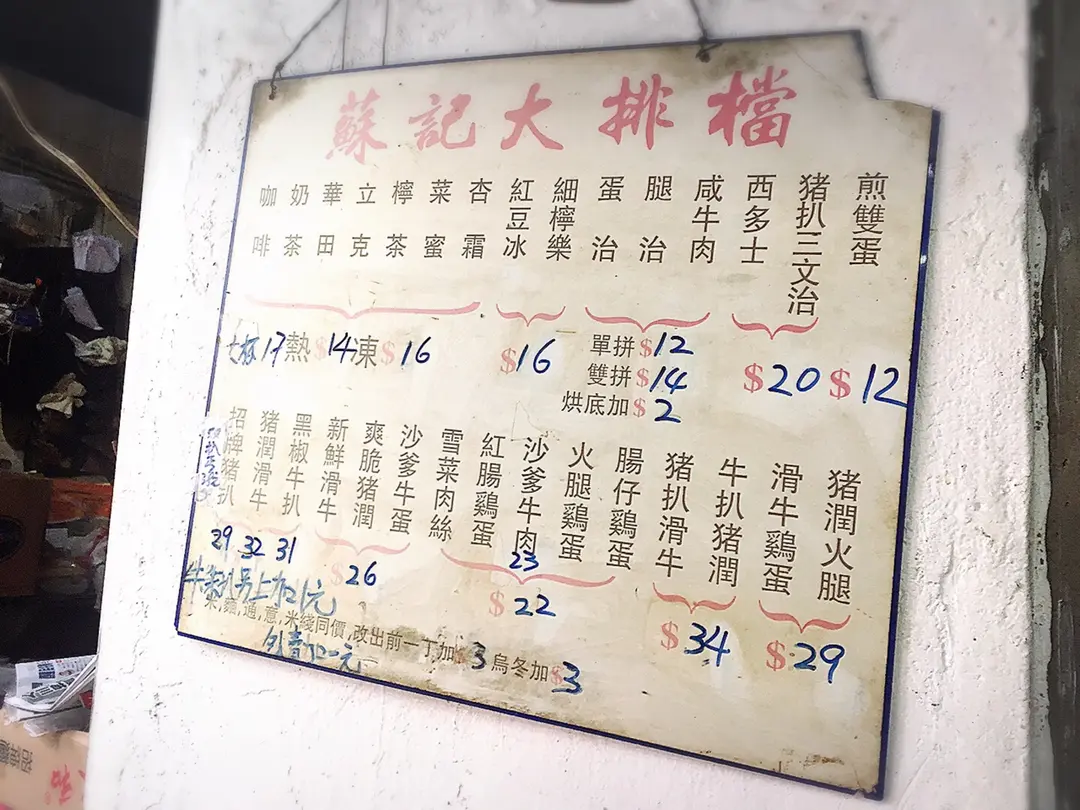 蘇記大排檔
咖啡
奶茶
華田
立克
檸茶
菜蜜
杏霜
紅豆冰
細檸樂
蛋治
腿治
咸牛肉
西多士
豬扒三文治
煎雙蛋
大杯17 熱$14 凍$16
$16
單拼$12
雙拼$14
烘底加$2
$20
$12
招牌豬扒
豬潤滑牛
黑椒牛扒
新鮮滑牛
爽脆豬潤
沙爹牛蛋
雪菜肉絲
紅腸鷄蛋
沙爹牛肉
火腿鷄蛋
腸仔鷄蛋
豬扒滑牛
牛扒豬潤
滑牛鷄蛋
豬潤火腿
29 32 31
$26
23
$22
$34
$29
米,麵,通,意,米綫同價,改出前一丁加$3 烏冬加$3